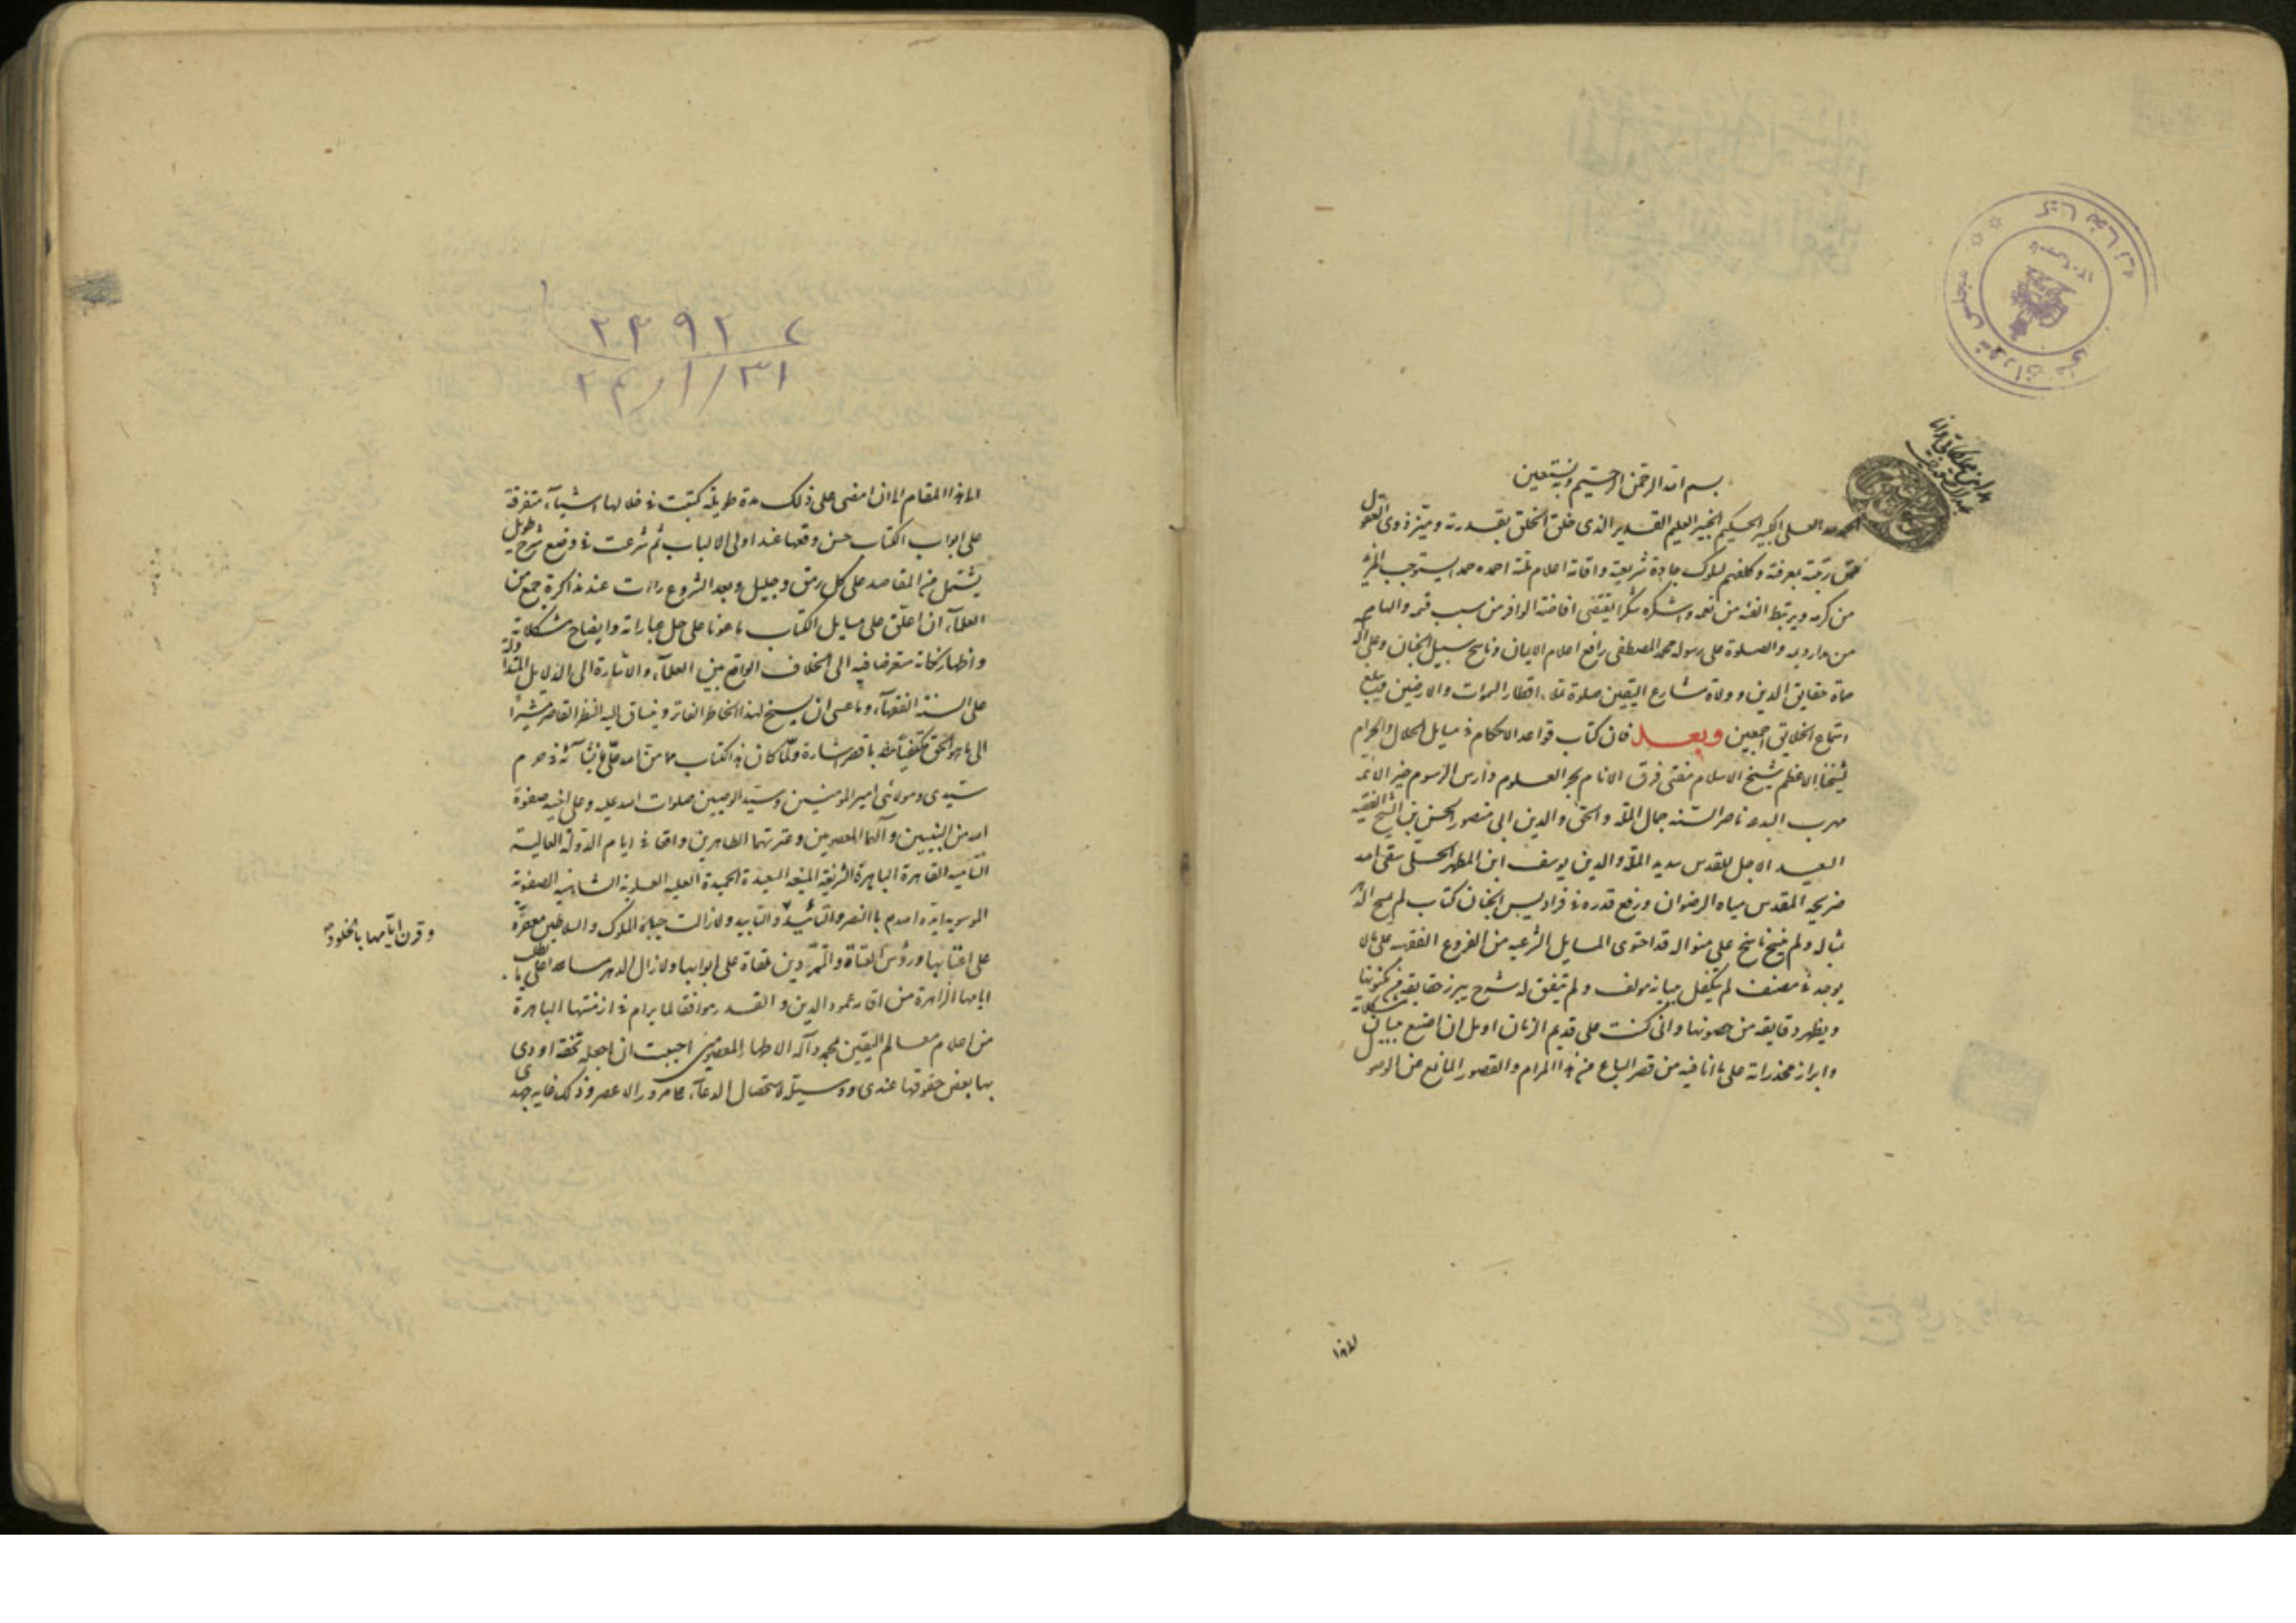 بسم الله الرحمن الرحيم وبه نستعين
الحمد لله العلي الكبير الحكيم الخبير العليم القدير الذي خلق الخلق بقدرته وميز ذوي العقول
بمعرفته وكلفهم لسلوك جادة شريعته واقامة اعلام احمده حمدا يستوجب المزيد
من كرمه ويرتبط نعمه واشكره شكرا يقتضي افاضة الوافر من سيب قسمه والهامي
من والصلوة على رسوله محمد المصطفى رافع اعلام الايمان وناهج سبيل الجنان وعلى آله
حماة حقايق الدين وولاة مشارع اليقين صلوة تملاء اقطار السموات والارضين ويبلغ
اسماع الخلايق اجمعين وبعد فان كتاب قواعد الاحكام في مسايل الحلال والحرام
لشيخنا الاعظم شيخ الاسلام مفتي فرق الانام بحر العلوم دارس الرسوم
مهرب ناصر السنة جمال الملة والحق والدين ابي منصور الحسن بن الشيخ الفقيه
السعيد الاجل المقدس سديد الملة والدين يوسف ابن المطهر الحلي سقى الله
ضريحه المقدس مياه الرضوان ورفع قدره في فراديس الجنان كتاب لم يسمح الدهر
بمثاله ولم ينسج ناسج على منواله قد احتوى المسايل الشرعيه من الفروع الفقهيه على ما لا
يوجد في مصنف لم يتكفل ببيانه مؤلف ولم يتفق له شرح يبرز حقايقه من مكنوناتها
ويظهر دقايقه من مصوناتها واني كنت على قديم الزمان اومل ان اضع لبيان مشكلاته
وابراز مخدراته على ما انا فيه من قصر الباع عن هذا المرام والقصور المانع من الوصول
لهذا
٢٤٩٢٧
٢٤/١/٣١
الى هذا المقام الى ان امضى على ذلك مدة طويلة كتبت في خلالها اشياء متفرقة
على ابواب الكتاب حسن وقعها عند اولي الالباب ثم شرعت في وضع شرح طويل
يشتمل من المقاصد على كل دق وجليل وبعد الشروع رايت عند مذاكرة جمع من
العلماء ان اعلق على مسايل الكتاب ما هو على حل عباراته وايضاح مشكلاته
واظهار نكاته متعرضا فيه الى الخلاف الواقع بين العلماء والاشارة الى الدلايل المتداولة
على السنة الفقهاء وما عسى ان يسنح لهذا الخاطر الفاتر وينساق اليه النظر القاصر مشيرا
الى ما هو الحق باقصر اشارة ولما كان هذا الكتاب مما من الله علي بانشائه في حرم
سيدي ومولائي امير المؤمنين وسيد الوصيين صلوات الله عليه وعلى اخيه صفوة
الله من النبيين وآلهما المعصومين وعترتهما الطاهرين واقعا في ايام الدولة العالية
السامية القاهرة الباهرة الشريفة المنيعة السعيدة الحميدة العلية العلوية الشاهية الصفوية
الموسوية ايدها الله بالنصر والتأييد ولا زالت جباه الملوك والسلاطين معفرة
وقرن ايامها بالخلود
على اعتابها ورؤس العتاة والمتمردين ملقاة على ابوابها ولا زال الدهر
ايامها الزاهرة من اقامة عمود الدين والقدر موافقا لما يرام في ازمنتها الباهرة
من اعلام معالم اليقين بمحمد وآله الاطهار المعصومين احببت ان اجعله تحفة اودي
بها بعض حقوقها عندي ووسيلة لاستحصال الدعاء مرور الاعصر وذلك غاية جهدي